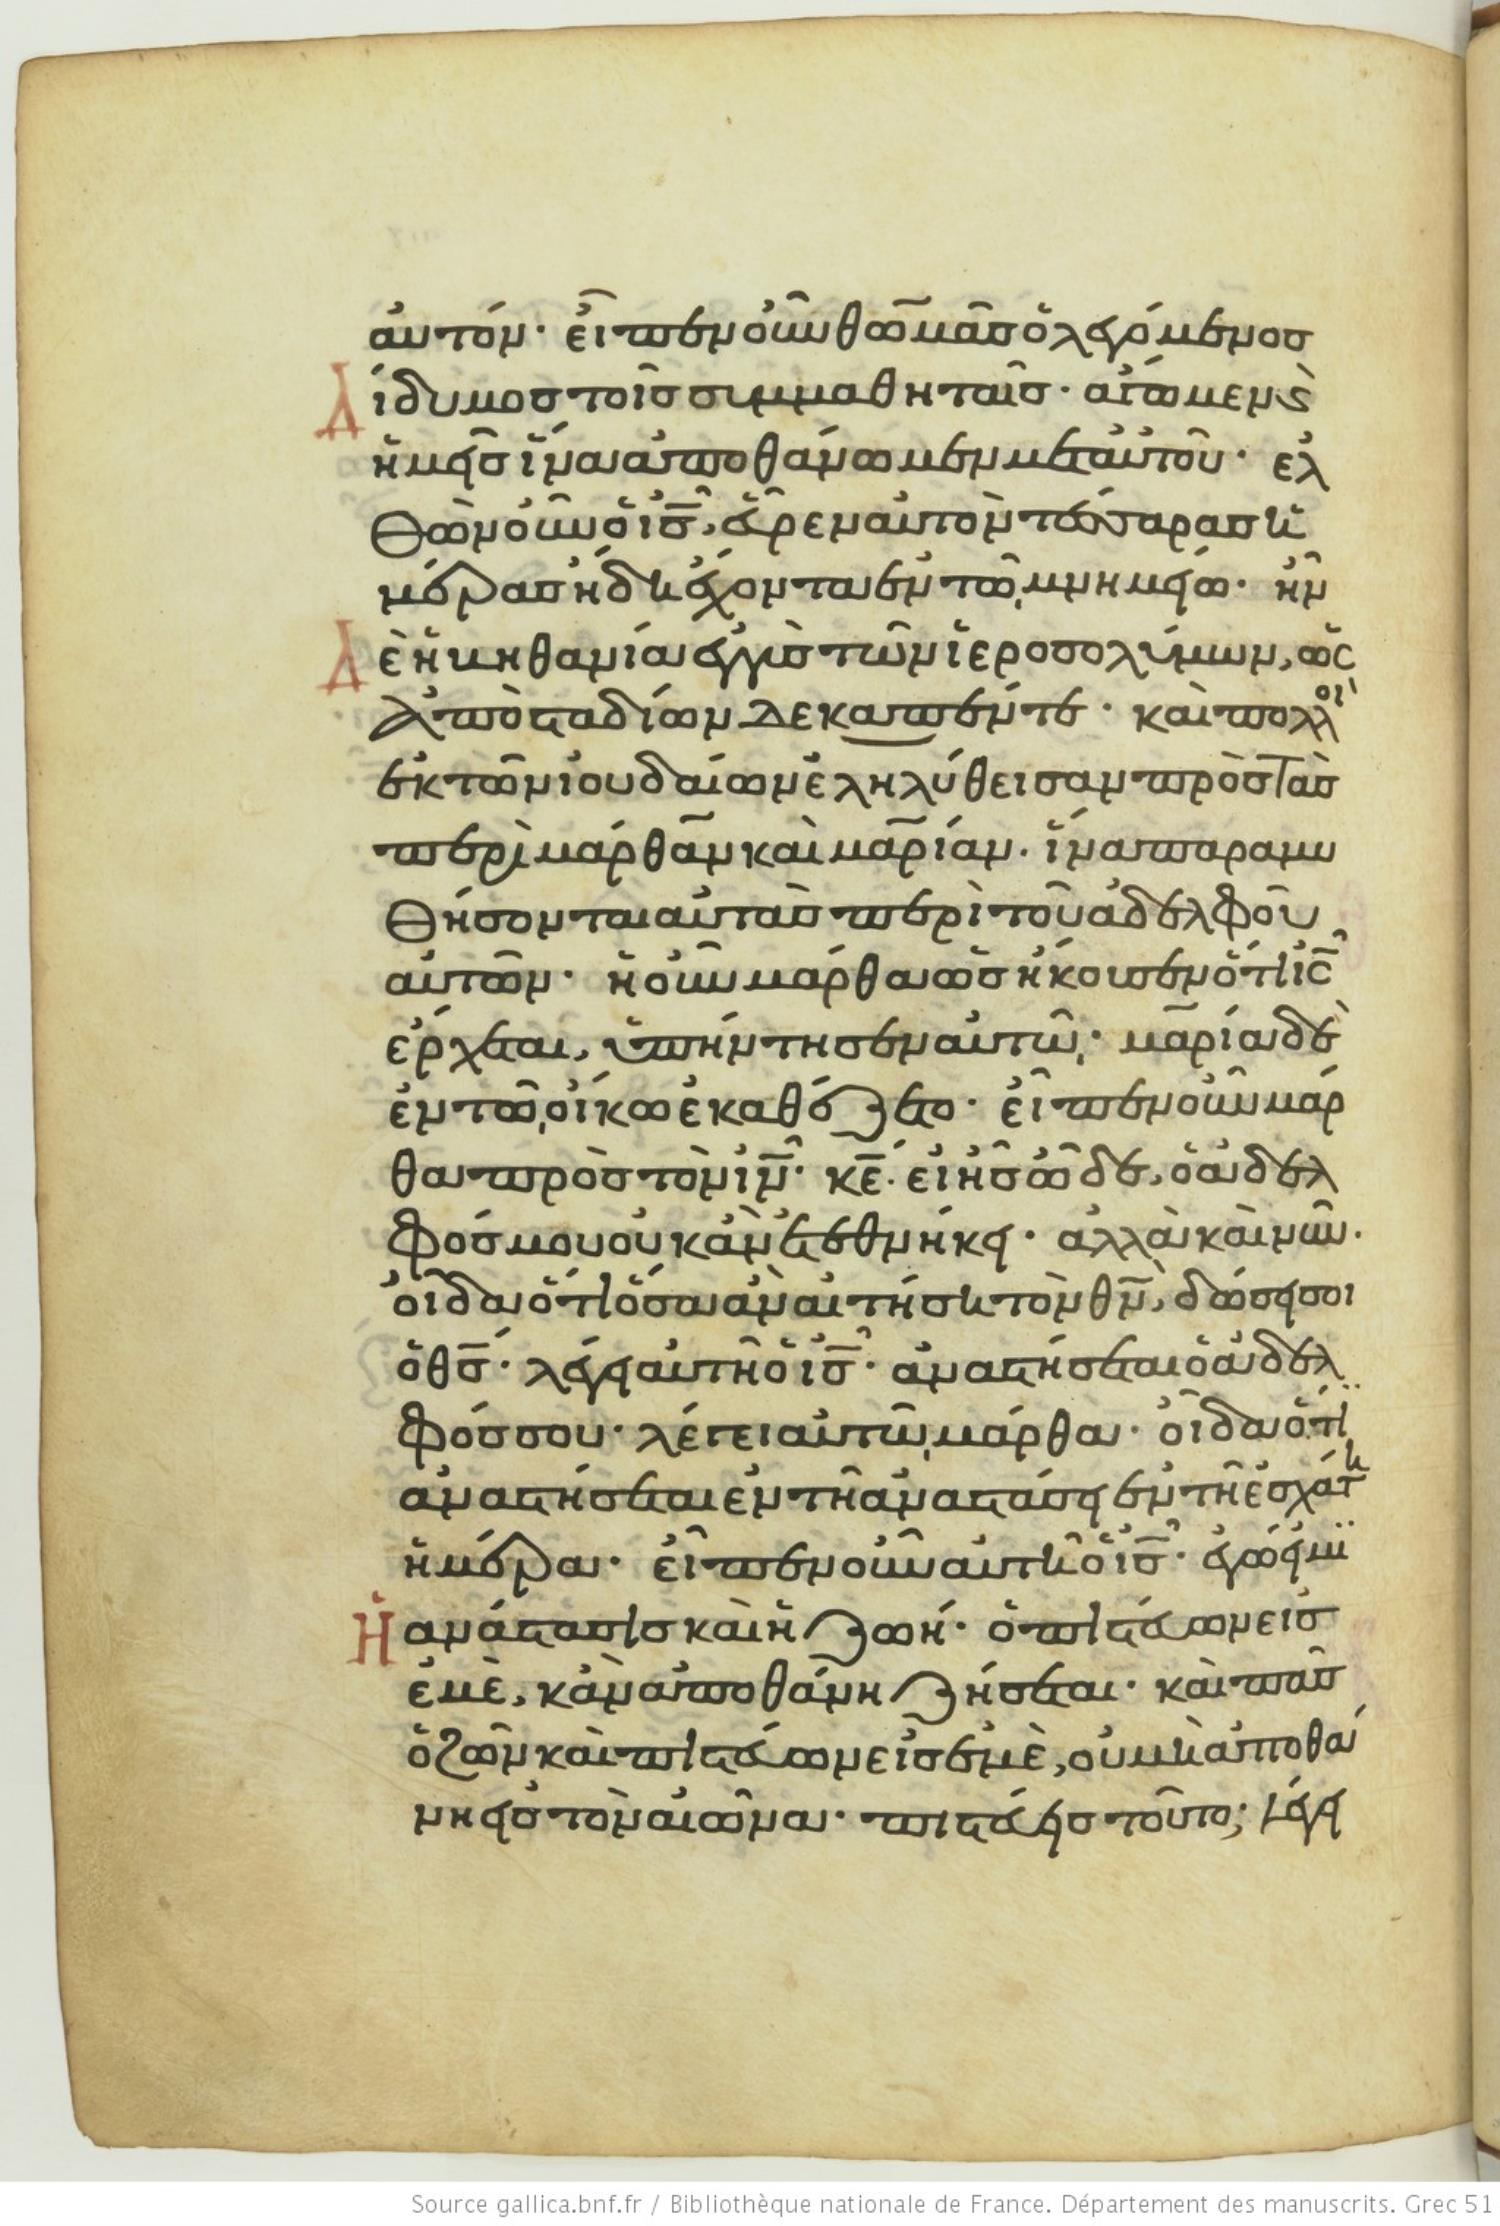 αὐτόν· εἶπεν οὖν θωμᾶς ὁ λεγόμενος
Δίδυμος τοῖς συμμαθηταῖς· ἄγωμεν ϗ
ἡμεῖς ἵνα ἀποθάνωμεν μετ αὐτοῦ· ἐλ
θὼν οὖν ὁ ις̅, εὗρεν αὐτὸν τέσσαρας ἡ
μέρας ἤδη ἔχοντα ἐν τῶ μνημείω· ἦν
Δὲ ἡ βηθανία ἐγγὺς τῶν ἱεροσολύμων, ὡς
ἀπὸ σταδίων δεκαπέντε· καὶ πολλοὶ
ἐκ τῶν ἰουδαίων ἐληλύθεισαν πρὸς τὰς
περὶ μάρθαν καὶ μαρίαν· ἵνα παραμυ
θήσονται αὐτὰς περὶ τοῦ ἀδελφοῦ
αὐτῶν· ἡ οὖν μάρθα ὡς ἤκουσεν ὅτι ις̅
ἔρχεται, ὑπήντησεν αὐτῶ· μαρία δὲ
ἐν τῶ οἴκω ἐκαθέζετο· εἶπεν οὖν μάρ
θα πρὸς τὸν ιν̅· κε̅· εἰ ἦς ὧδε, ὁ ἀδελ
φός μου οὐκ ἂν ἐτεθνήκει· ἀλλὰ καὶ νῦν·
οἶδα ὅτι ὅσα ἂν αἰτήση τὸν θν̅, δώσει σοι
ὁ θς̅· λέγει αὐτῆ ὁ ις̅· ἀναστήσεται ὁ ἀδελ
φός σου· λέγει αὐτῶ μάρθα· οἶδα ὅτι
ἀναστήσεται ἐν τῆ ἀναστάσει ἐν τῆ ἐσχάτη
ἡμέρα· εἶπεν οὖν αὐτῆ ὁ ις̅· ἐγώ εἰμι
Ἡ ἀνάστασις καὶ ἡ ζωή· ὁ πιστεύων εἰς
ἐμὲ, κἂν ἀποθάνη ζήσεται· καὶ πᾶς
ὁ ζῶν καὶ πιστεύων εἰς ἐμὲ, οὐ μὴ ἀποθά
νη εἰς τὸν αἰῶνα· πιστεύεις τοῦτο; λέγει
Source gallica.bnf.fr / Bibliothèque nationale de France. Département des manuscrits. Grec 51